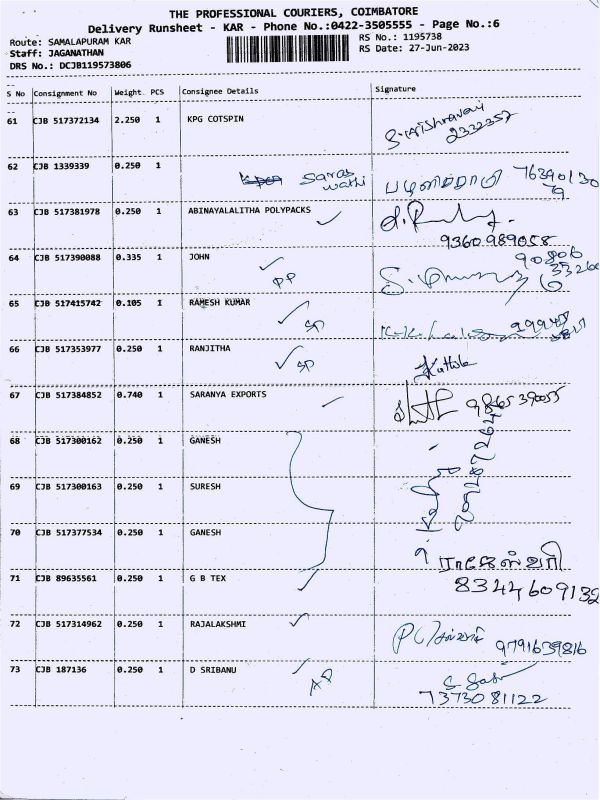 THE PROFESSIONAL COURIERS, COIMBATORE
Delivery Runsheet - KAR - Phone No.:0422-3505555 - Page No.:6
Route: SAMALAPURAM KAR RS No.: 1195738
Staff: JAGANATHAN RS Date: 27-Jun-2023
DRS No.: DCJB119573806
S No Consignment No Weight. PCS Consignee Details Signature
61 CJB 517372134 2.250 1 KPG COTSPIN
62 CJB 1339339 0.250 1 Saras
wathi
63 CJB 517381978 0.250 1 ABINAYALALITHA POLYPACKS
9360989058
64 CJB 517390088 0.335 1 JOHN
PP
65 CJB 517415742 0.105 1 RAMESH KUMAR
SP
66 CJB 517353977 0.250 1 RANJITHA
SP
67 CJB 517384852 0.740 1 SARANYA EXPORTS
68 CJB 517300162 0.250 1 GANESH
69 CJB 517300163 0.250 1 SURESH
70 CJB 517377534 0.250 1 GANESH
ராஜேஸ்வரி
71 CJB 89635561 0.250 1 G B TEX 8344609132
72 CJB 517314962 0.250 1 RAJALAKSHMI
9791639816
73 CJB 187136 0.250 1 D SRIBANU
AP
7373081122